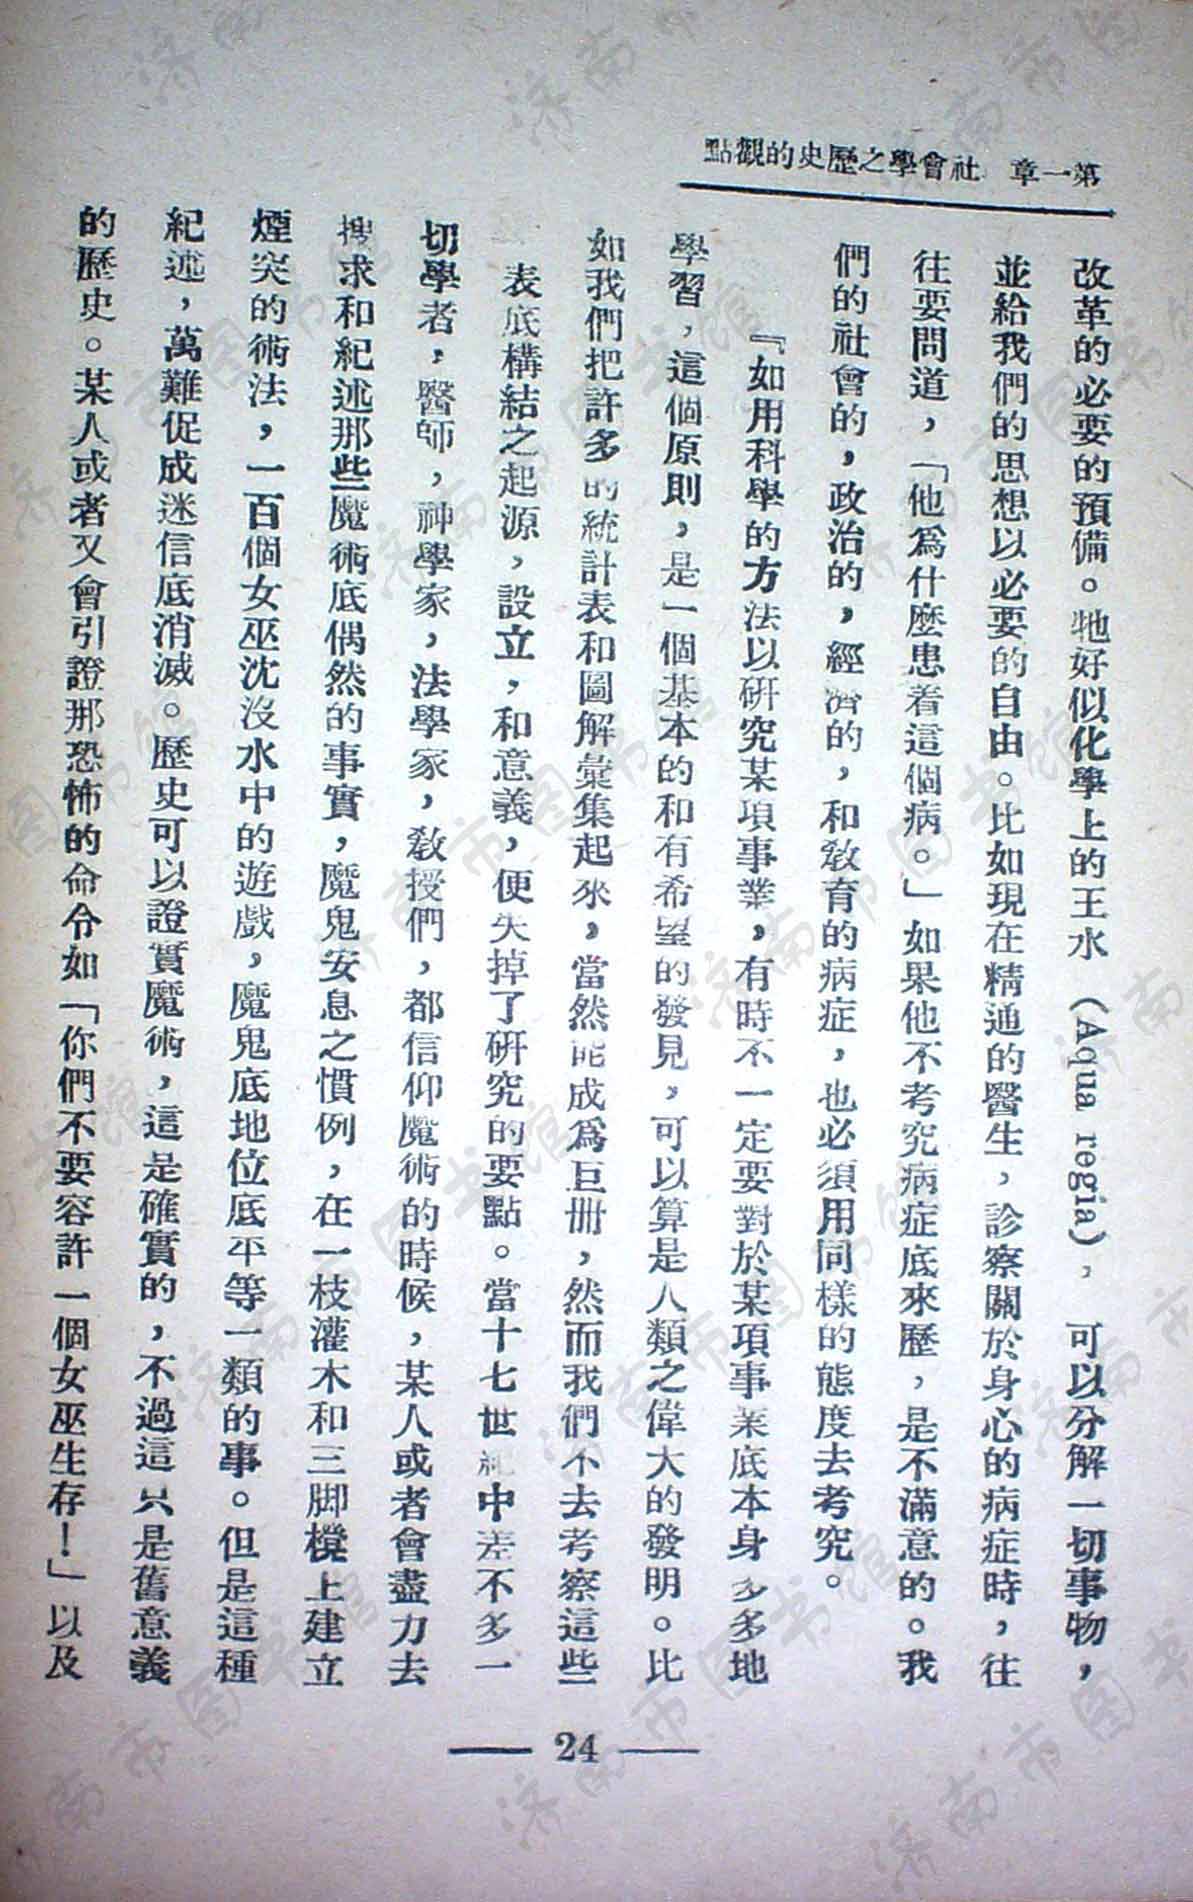 第一章 社會學之歷史的觀點
改革的必要的預備。牠好似化學上的王水（Aqua regia），可以分解一切事物，
並給我們的思想以必要的自由。比如現在精通的醫生，診察關於身心的病症時，往
往要問道，「他爲什麼患着這個病。」如果他不考究病症底來歷，是不滿意的。我
們的社會的，政治的，經濟的，和敎育的病症，也必須用同樣的態度去考究。
『如用科學的方法以研究某項事業，有時不一定要對於某項事業底本身多多地
學習，這個原則，是一個基本的和有希望的發見，可以算是人類之偉大的發明。比
如我們把許多的統計表和圖解彙集起來，當然能成爲巨册，然而我們不去考察這些
表底構結之起源，設立，和意義，便失掉了研究的要點。當十七世紀中差不多一
切學者，醫師，神學家，法學家，敎授們，都信仰魔術的時候，某人或者會盡力去
搜求和紀述那些魔術底偶然的事實，魔鬼安息之慣例，在一枝灌木和三脚櫈上建立
煙突的術法，一百個女巫沈沒水中的遊戲，魔鬼底地位底平等一類的事。但是這種
紀述，萬難促成迷信底消滅。歷史可以證實魔術，這是確實的，不過這只是舊意義
的歷史。某人或者又會引證那恐怖的命令如「你們不要容許一個女巫生存！」以及
24
济南市图书馆